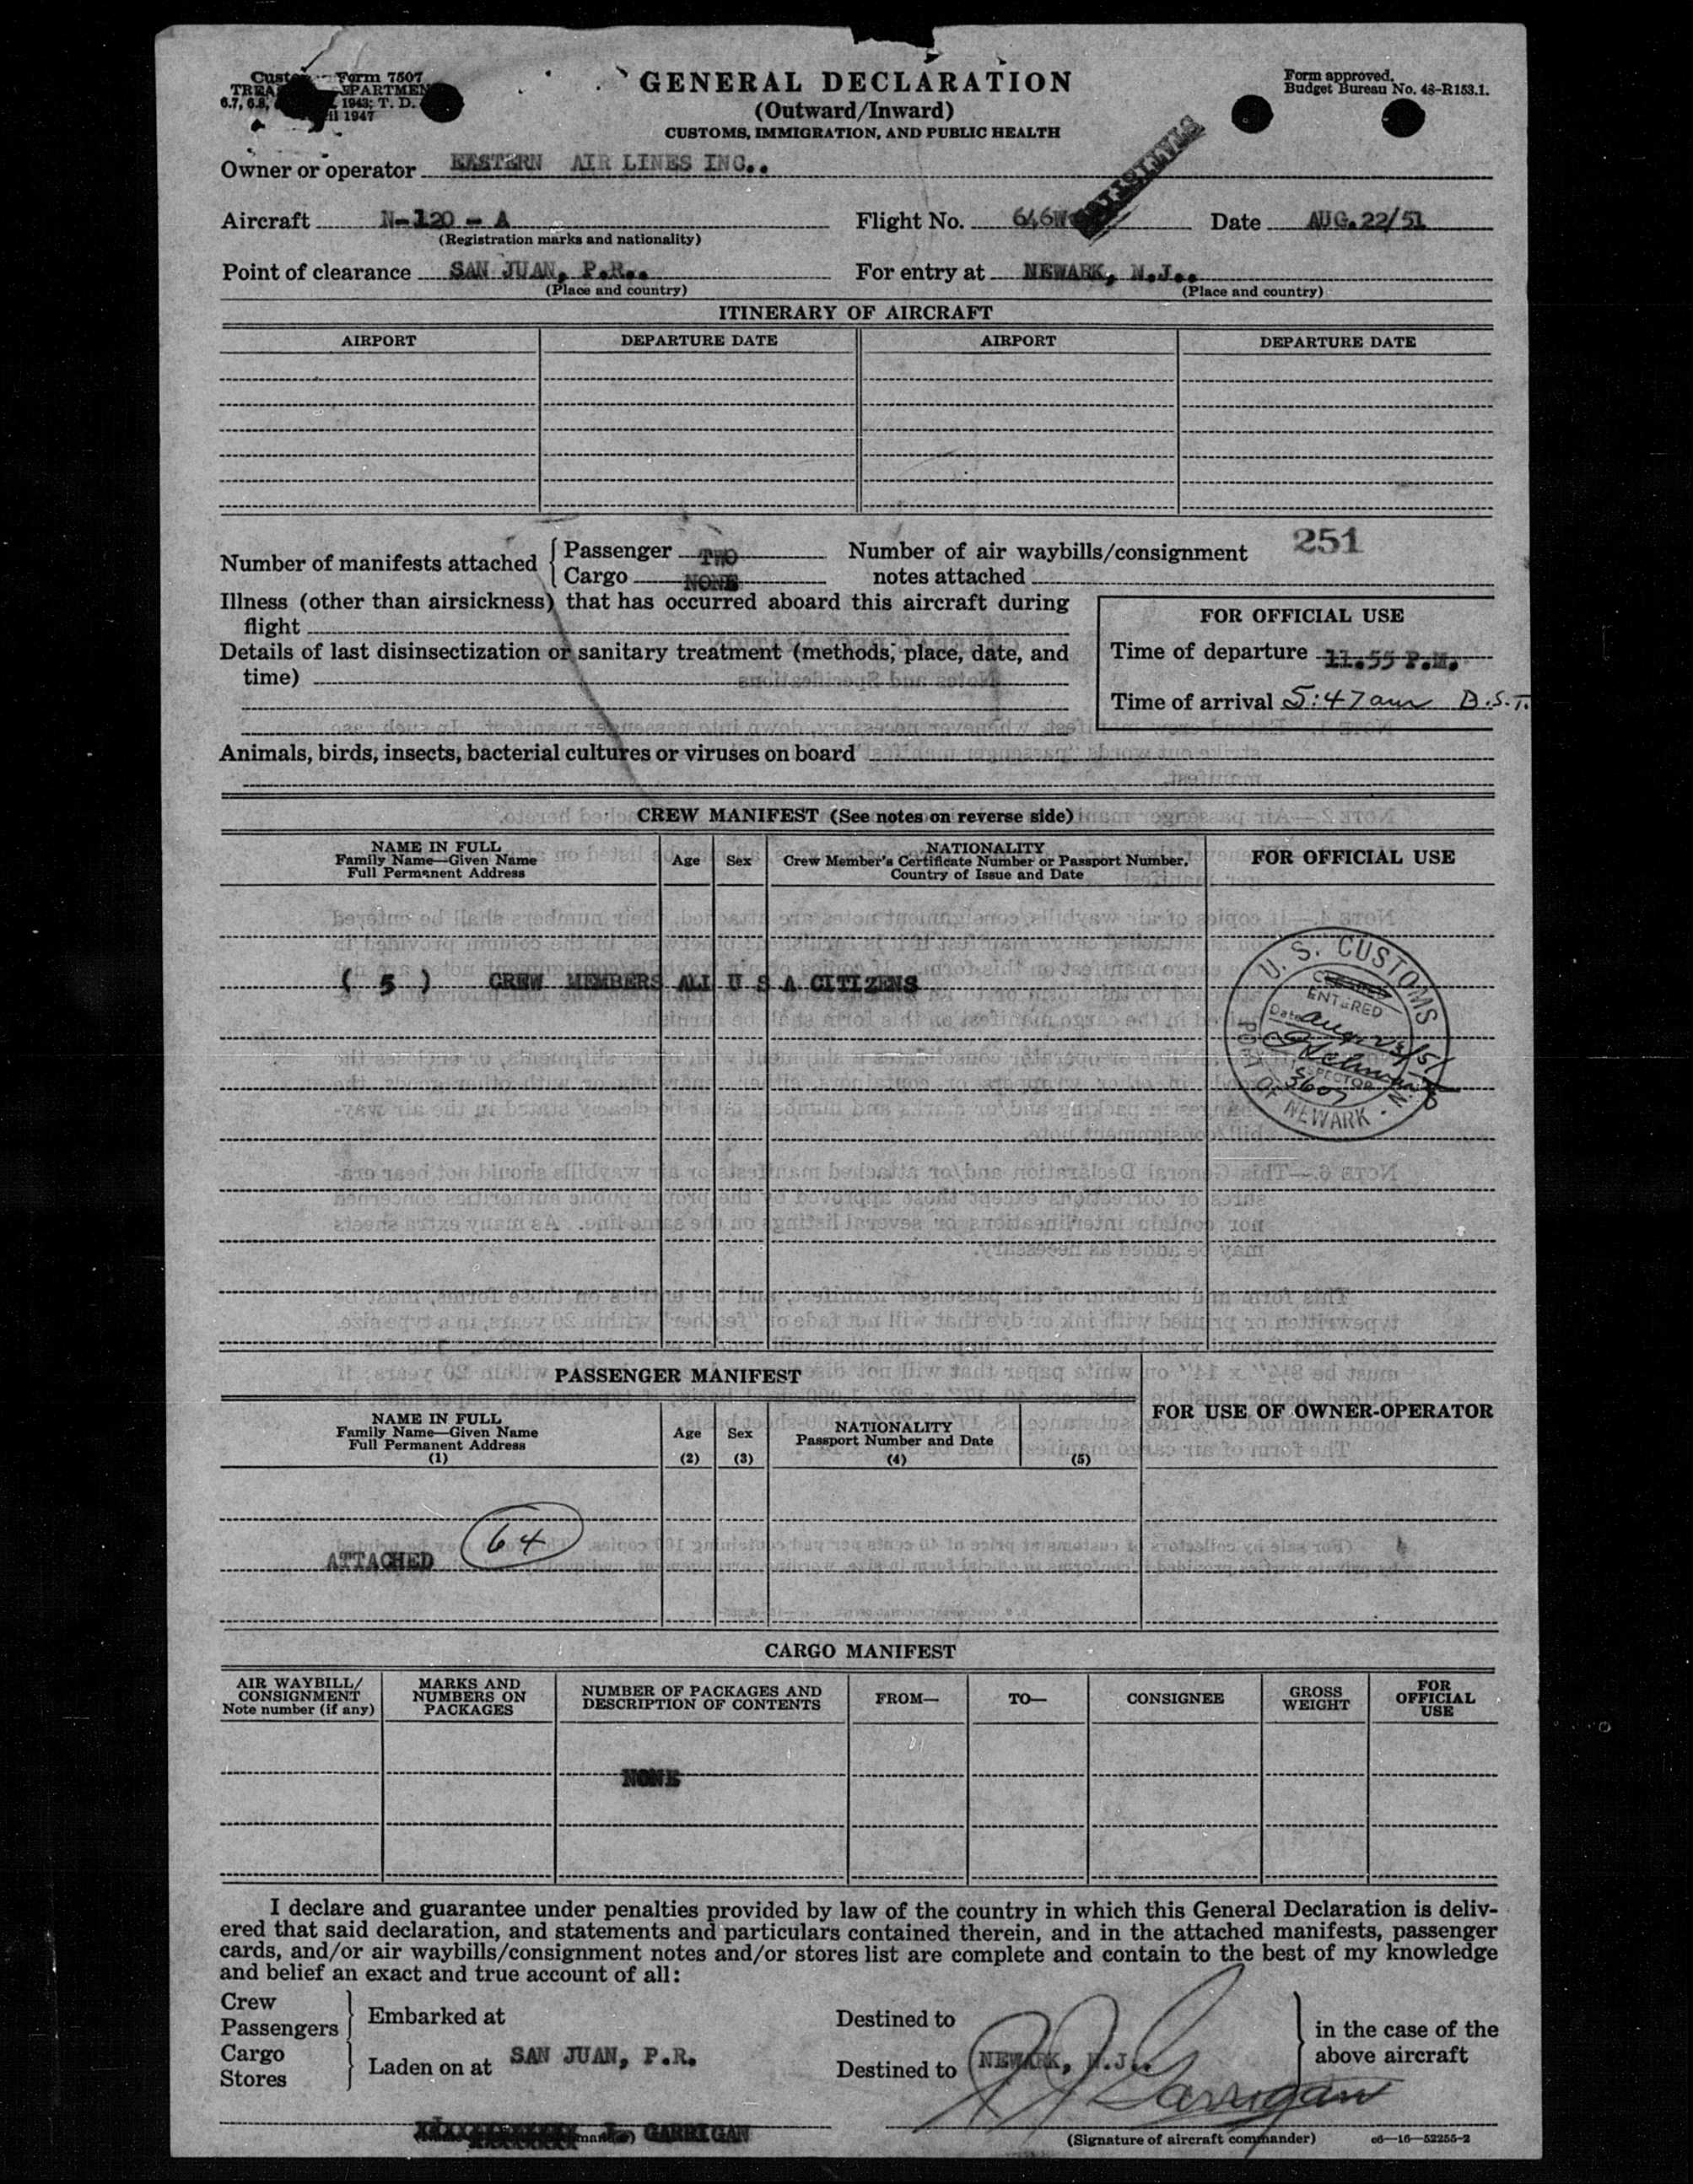 Form 7507
GENERAL DECLARATION
Form approved.
Budget Bureau No. 48-R153.1.
6.7, 6.8, 1943; T. D.
1947
(Outward/Inward)
CUSTOMS, IMMIGRATION, AND PUBLIC HEALTH
Owner or operator EESTERN AIR LINES INC..
Aircraft N-120 - A Flight No. 646W Date AUG.22/51
(Registration marks and nationality)
Point of clearance SAN JUAN, P.R.. For entry at NEWARK, N.J..
(Place and country) (Place and country)
ITINERARY OF AIRCRAFT
AIRPORT DEPARTURE DATE AIRPORT DEPARTURE DATE
251
Number of manifests attached { Passenger TWO Number of air waybills/consignment
Cargo NONE notes attached
Illness (other than airsickness) that has occurred aboard this aircraft during
flight
Details of last disinsectization or sanitary treatment (methods, place, date, and
time)
FOR OFFICIAL USE
Time of departure 11.55 P.M.
Time of arrival 5:47 am D.S.T.
Animals, birds, insects, bacterial cultures or viruses on board
CREW MANIFEST (See notes on reverse side)
NAME IN FULL
Family Name—Given Name
Full Permanent Address
Age Sex
NATIONALITY
Crew Member's Certificate Number or Passport Number,
Country of Issue and Date
FOR OFFICIAL USE
( 5 ) CREW MEMBERS ALL U S A CITIZENS
U. S. CUSTOMS
ENTERED
Date Aug 23/51
INSPECTOR
3607
PORT OF NEWARK - N.J.
PASSENGER MANIFEST
FOR USE OF OWNER-OPERATOR
NAME IN FULL
Family Name—Given Name
Full Permanent Address
(1)
Age
(2)
Sex
(3)
NATIONALITY
Passport Number and Date
(4) (5)
ATTACHED 64
CARGO MANIFEST
AIR WAYBILL/
CONSIGNMENT
Note number (if any)
MARKS AND
NUMBERS ON
PACKAGES
NUMBER OF PACKAGES AND
DESCRIPTION OF CONTENTS
FROM— TO— CONSIGNEE
GROSS
WEIGHT
FOR
OFFICIAL
USE
NONE
I declare and guarantee under penalties provided by law of the country in which this General Declaration is deliv-
ered that said declaration, and statements and particulars contained therein, and in the attached manifests, passenger
cards, and/or air waybills/consignment notes and/or stores list are complete and contain to the best of my knowledge
and belief an exact and true account of all:
Crew
Passengers } Embarked at Destined to
Cargo
Stores } Laden on at SAN JUAN, P.R. Destined to NEWARK, N.J..
in the case of the
above aircraft
J. GARRIGAN
J J Garrigan
(Signature of aircraft commander) c6—16—52255-2